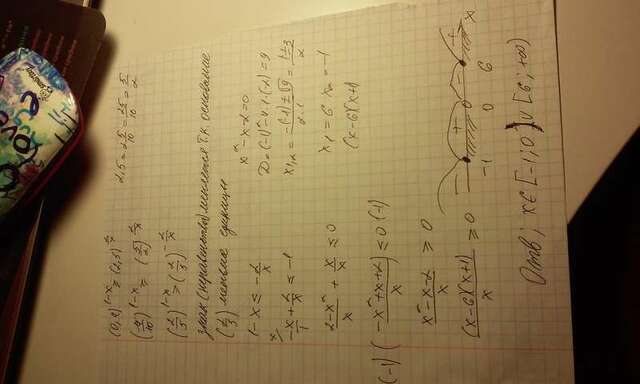 (0,4)^{1-x} ≥ (2,5)^{2/x}
2,5 = 2 5/10 = 25/10 = 5/2
(4/10)^{1-x} ≥ (5/2)^{2/x}
(2/5)^{1-x} ≥ (2/5)^{-2/x}
знак (неравенства) меняется т.к. основание
(2/5) меньше единицы
1-x ≤ -2/x
-x/1 + 2/x ≤ -1
(2-x²)/x + x/x ≤ 0
(-1) ( (-x²+x+2)/x ) ≤ 0 (-1)
(x²-x-2)/x ≥ 0
((x-6)(x+1))/x ≥ 0
x²-x-2=0
D=(-1)²-4·1·(-2)=9
x1,2 = (-(-1)±√9)/(2·1) = (1±3)/2
x1=6 x2=-1
(x-6)(x+1)
- + - +
-1 0 6 x
Отв; x∈[-1;0)∪[6;+∞)